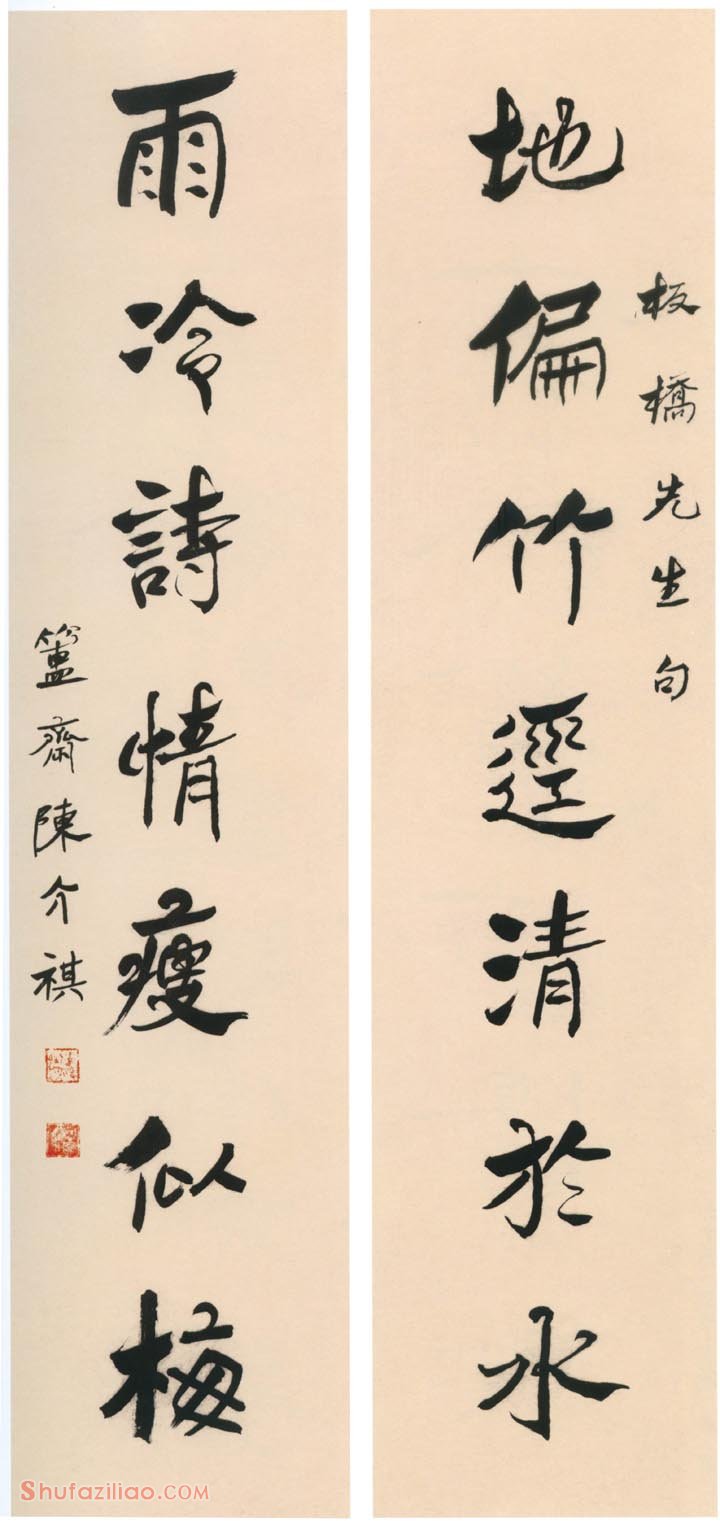 板橋先生句
地偏竹逕清於水
雨冷詩情瘦似梅
簠齋陳介祺
Shufaziliao.COM